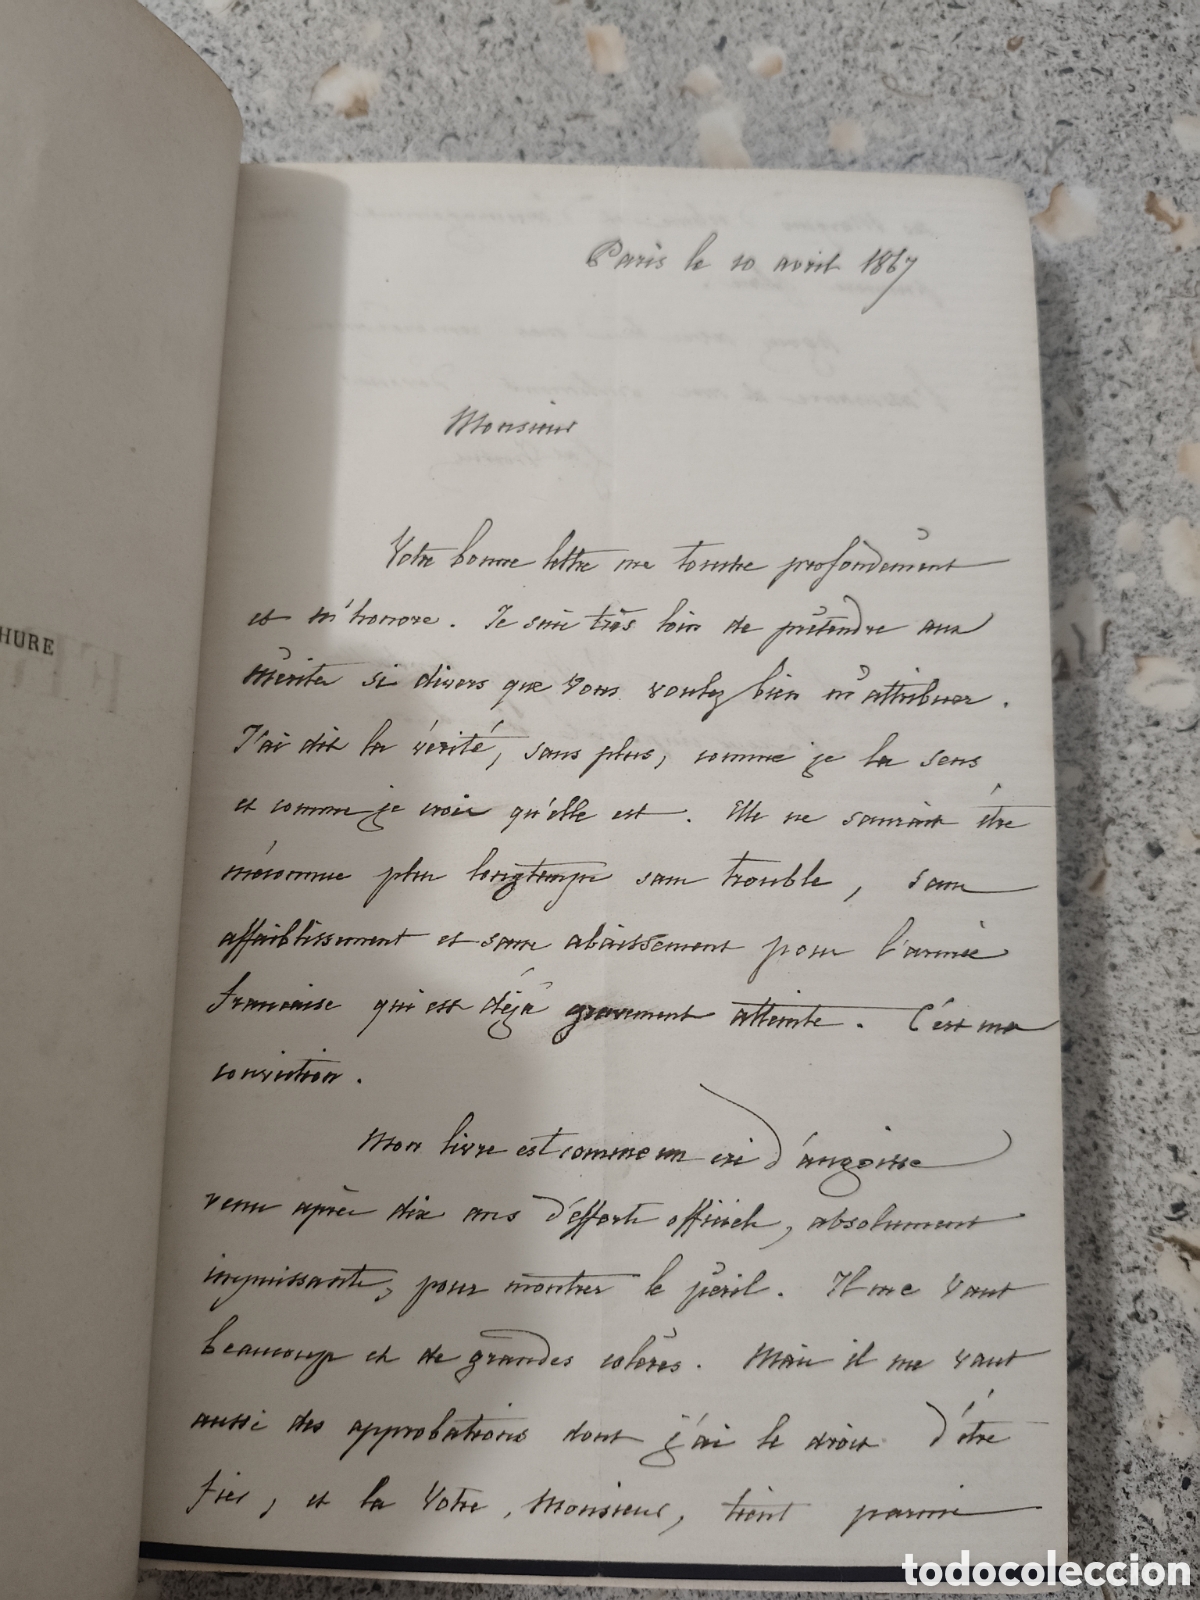 HURE
Paris le 10 avril 1867
Monsieur
Votre bonne lettre me touche profondément
et m'honore. Je suis très loin de prétendre aux
mérites si divers que vous voulez bien m'attribuer.
J'ai dit la vérité, sans plus, comme je la sens
et comme je crois qu'elle est. Elle ne saurait être
méconnue plus longtemps sans trouble, sans
affaiblissement et sans abaissement pour l'armée
française qui est déjà gravement atteinte. C'est ma
conviction.
Mon livre est comme un cri d'angoisse
venu après dix ans d'efforts officiels, absolument
impuissants, pour montrer le péril. Il me vaut
beaucoup et de grandes colères. Mais il me vaut
aussi des approbations dont j'ai le droit d'être
fier, et la Votre, Monsieur, tient parmi
todocoleccion